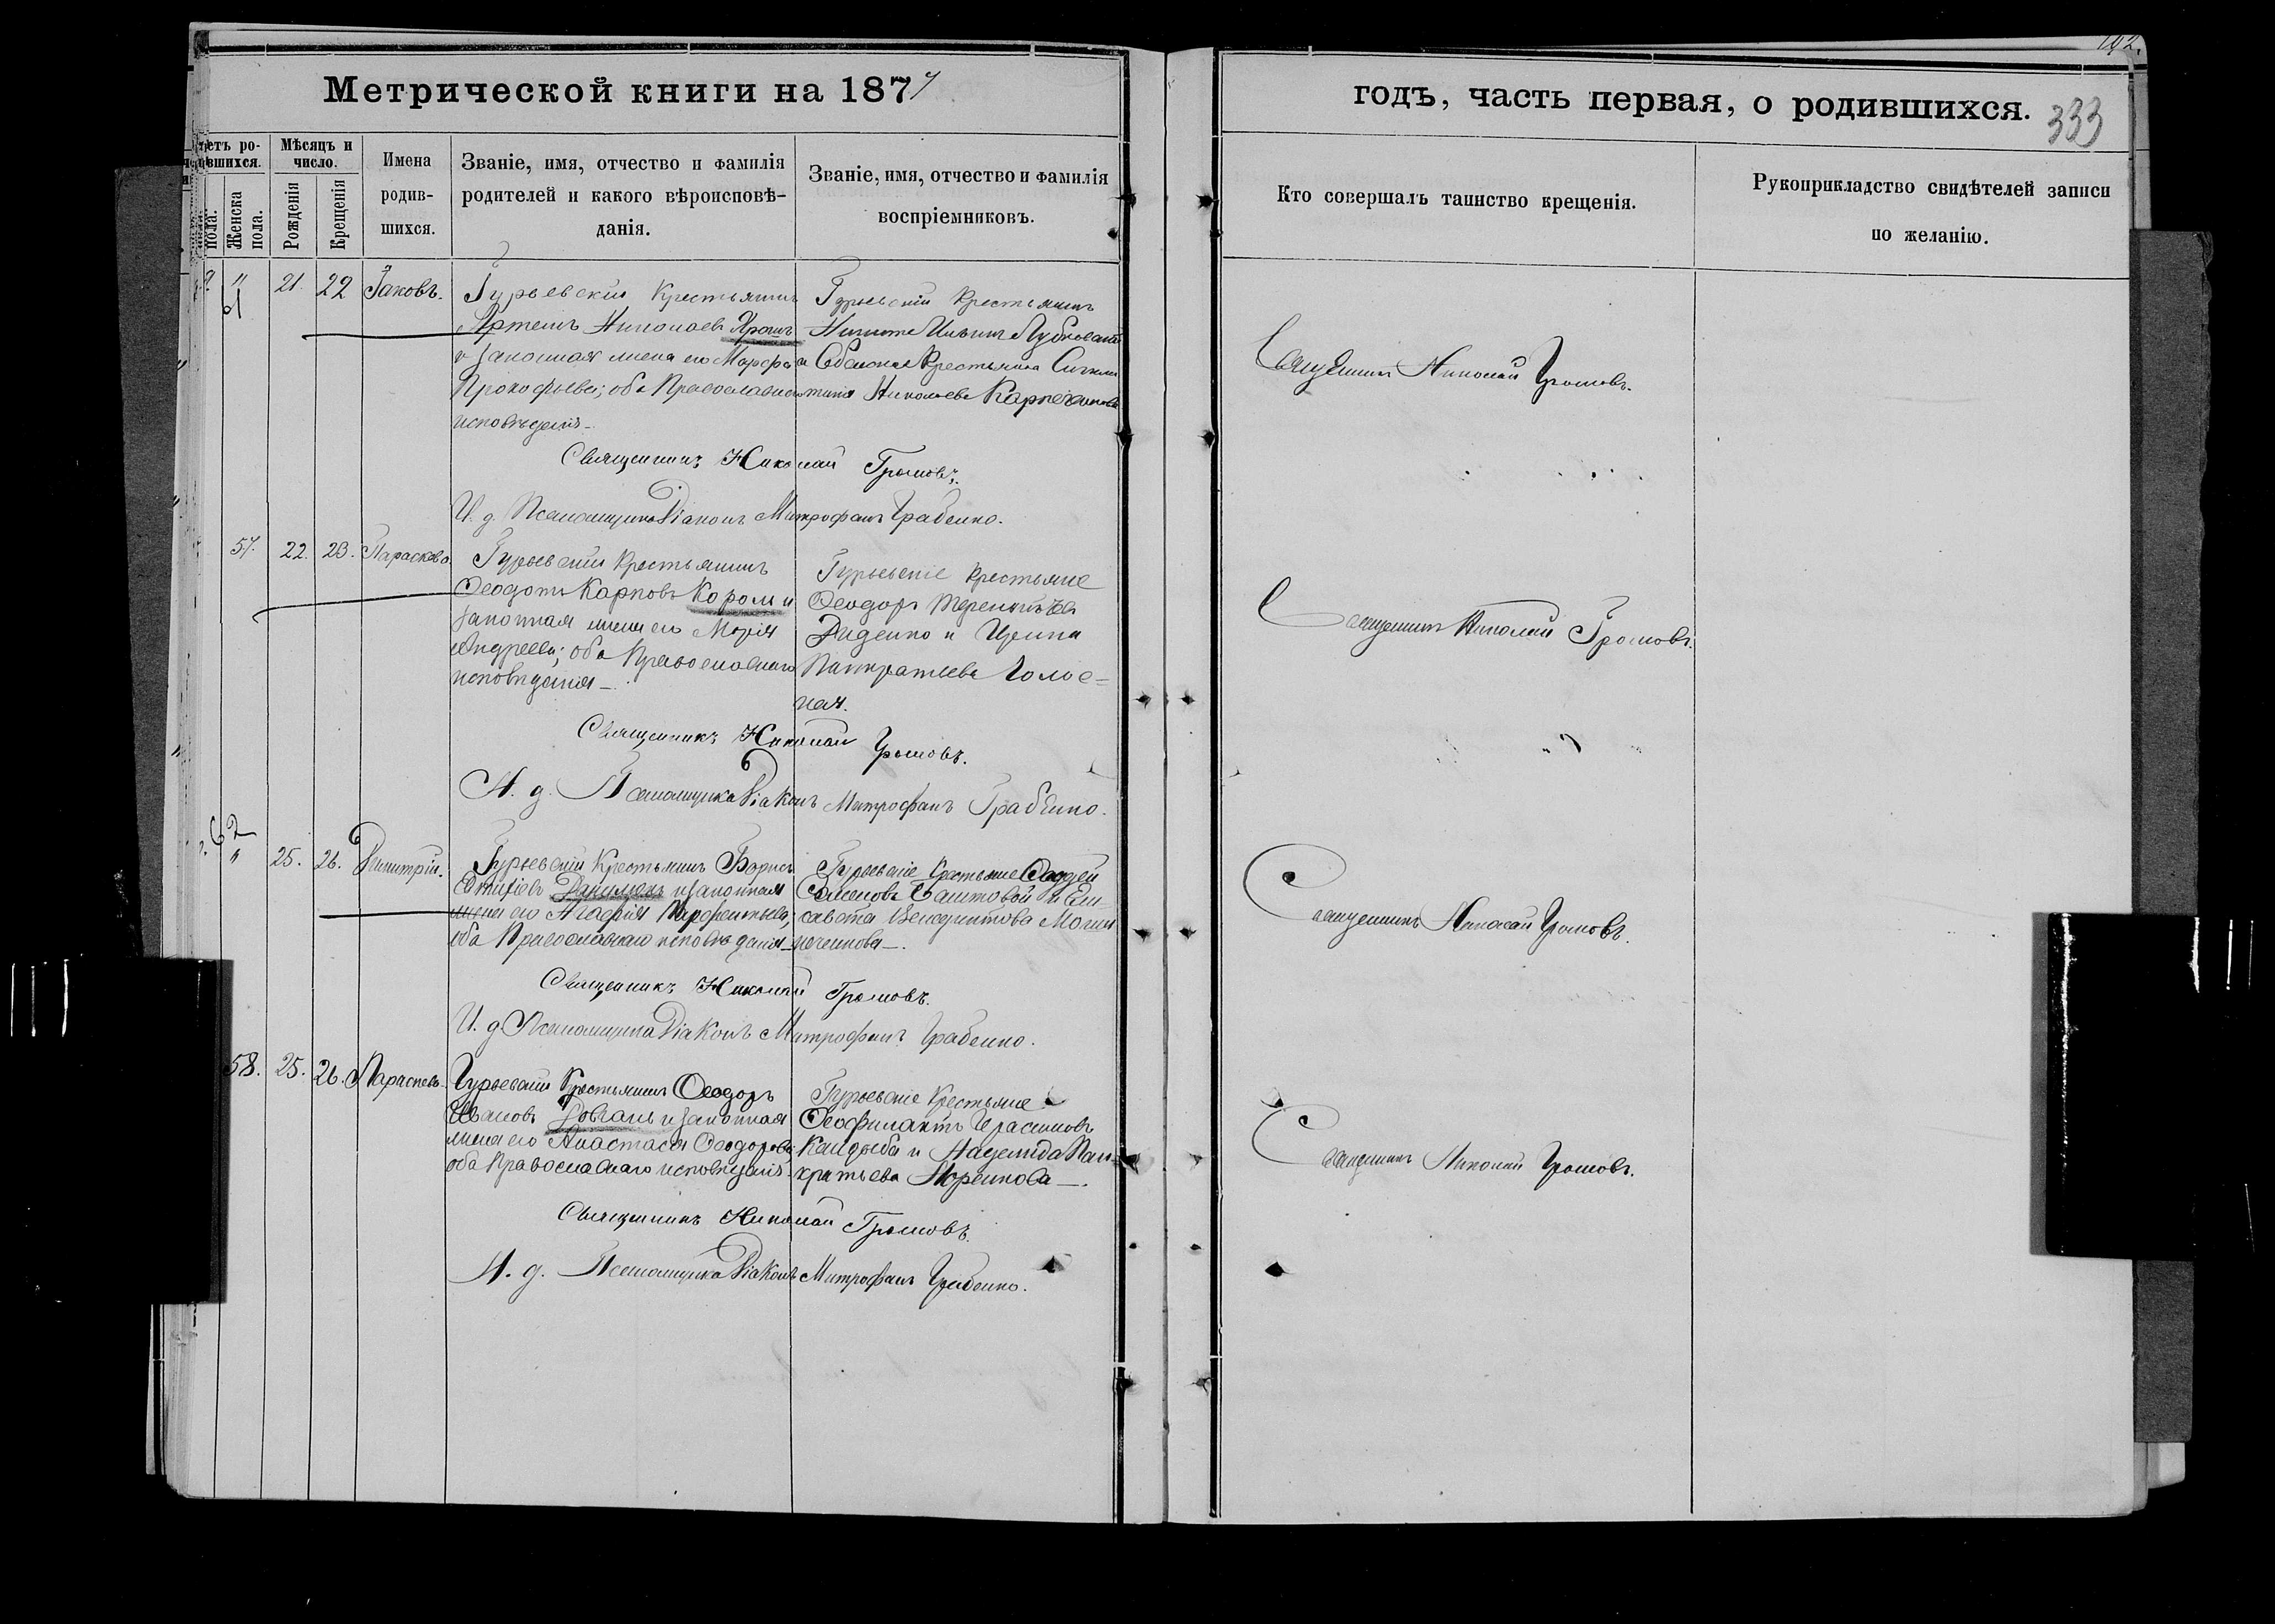 Метрической книги на 1877
годъ, часть первая, о родившихся.
333
192.
Мѣсяцъ и число.
Женска пола.
Рожденія
Крещенія
Имена родив-
шихся.
Званіе, имя, отчество и фамилія
родителей и какого вѣроисповѣ-
данія.
Званіе, имя, отчество и фамилія
воспріемниковъ.
Кто совершалъ таинство крещенія.
Рукоприкладство свидѣтелей записи
по желанію.
61 " 21. 22 Іаковъ.
Гурьевскій Крестьянинъ
Артемъ Николаевъ
и законная жена его Марфа
Прокофьева; оба Православнаго
исповѣданія —
Гурьевскій Крестьянинъ
Никита Ильинъ
Крестьянина
Николаева
Священникъ Николай Громовъ.
Священникъ Николай Громовъ.
И. д. Псаломщика Діаконъ Митрофанъ Грабенко.
57. 22. 23. Параскева.
Гурьевскій Крестьянинъ
Ѳеодотъ Карповъ Король и
законная жена его Марія
Андреева; оба Православнаго
исповѣданія —
Гурьевскіе Крестьяне
Ѳеодоръ Терентіевъ
Диденко и Ирина
Панкратьева Голос=
ная.
Священникъ Николай Громовъ.
Священникъ Николай Громовъ.
И. д. Псаломщика Діаконъ Митрофанъ Грабенко.
62 " 25. 26. Димитрій.
Гурьевскій Крестьянинъ Борисъ
Евтихіевъ и законная
жена его Агафія Парфентьева;
оба Православнаго исповѣданія —
Гурьевскіе Крестьяне Ѳаддей
Семеновъ Баштовой и Ели-
савета Венедиктова
Священникъ Николай Громовъ.
Священникъ Николай Громовъ.
И. д. Псаломщика Діаконъ Митрофанъ Грабенко.
58. 25. 26. Параскева.
Гурьевскій Крестьянинъ Ѳеодоръ
Ивановъ Довгань и законная
жена его Анастасія Ѳеодорова;
оба Православнаго исповѣданія.
Гурьевскіе Крестьяне
Ѳеофилактъ Герасимовъ
Кандыба и Надежда Пан-
кратьева
Священникъ Николай Громовъ.
Священникъ Николай Громовъ.
И. д. Псаломщика Діаконъ Митрофанъ Грабенко.